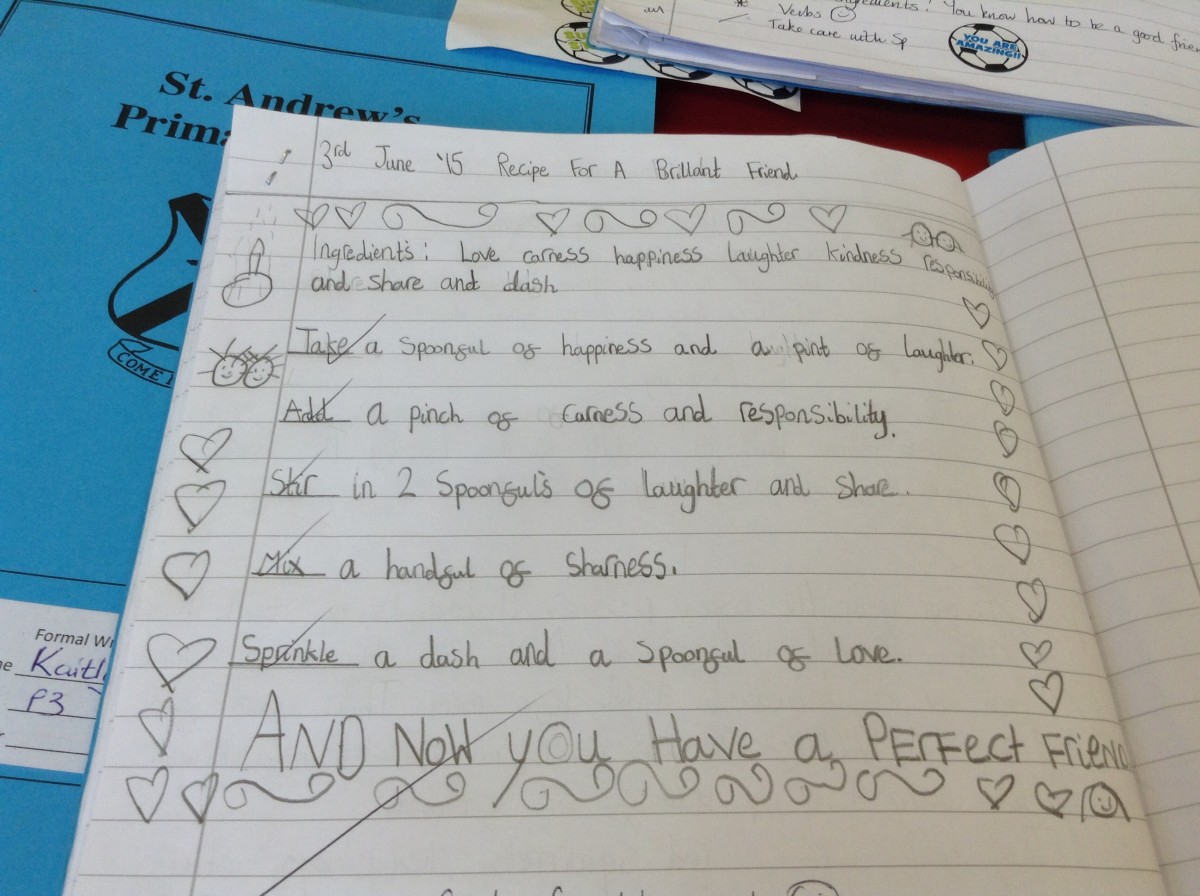 St. Andrew's
Verbs
Take care with Sp
You know how to be a good
YOU ARE AMAZING!!
3rd June '15 Recipe For A Brillant Friend
Ingredients: Love carness happiness laughter kindness responsibility
and share and dash
Take a spoonful of happiness and a pint of laughter.
Add a pinch of carness and responsibility.
Stir in 2 Spoonfuls of laughter and share.
Mix a handful of sharness.
Sprinkle a dash and a spoonful of love.
AND NOW yOU Have a PERFect FRieND
COME
Formal
P3